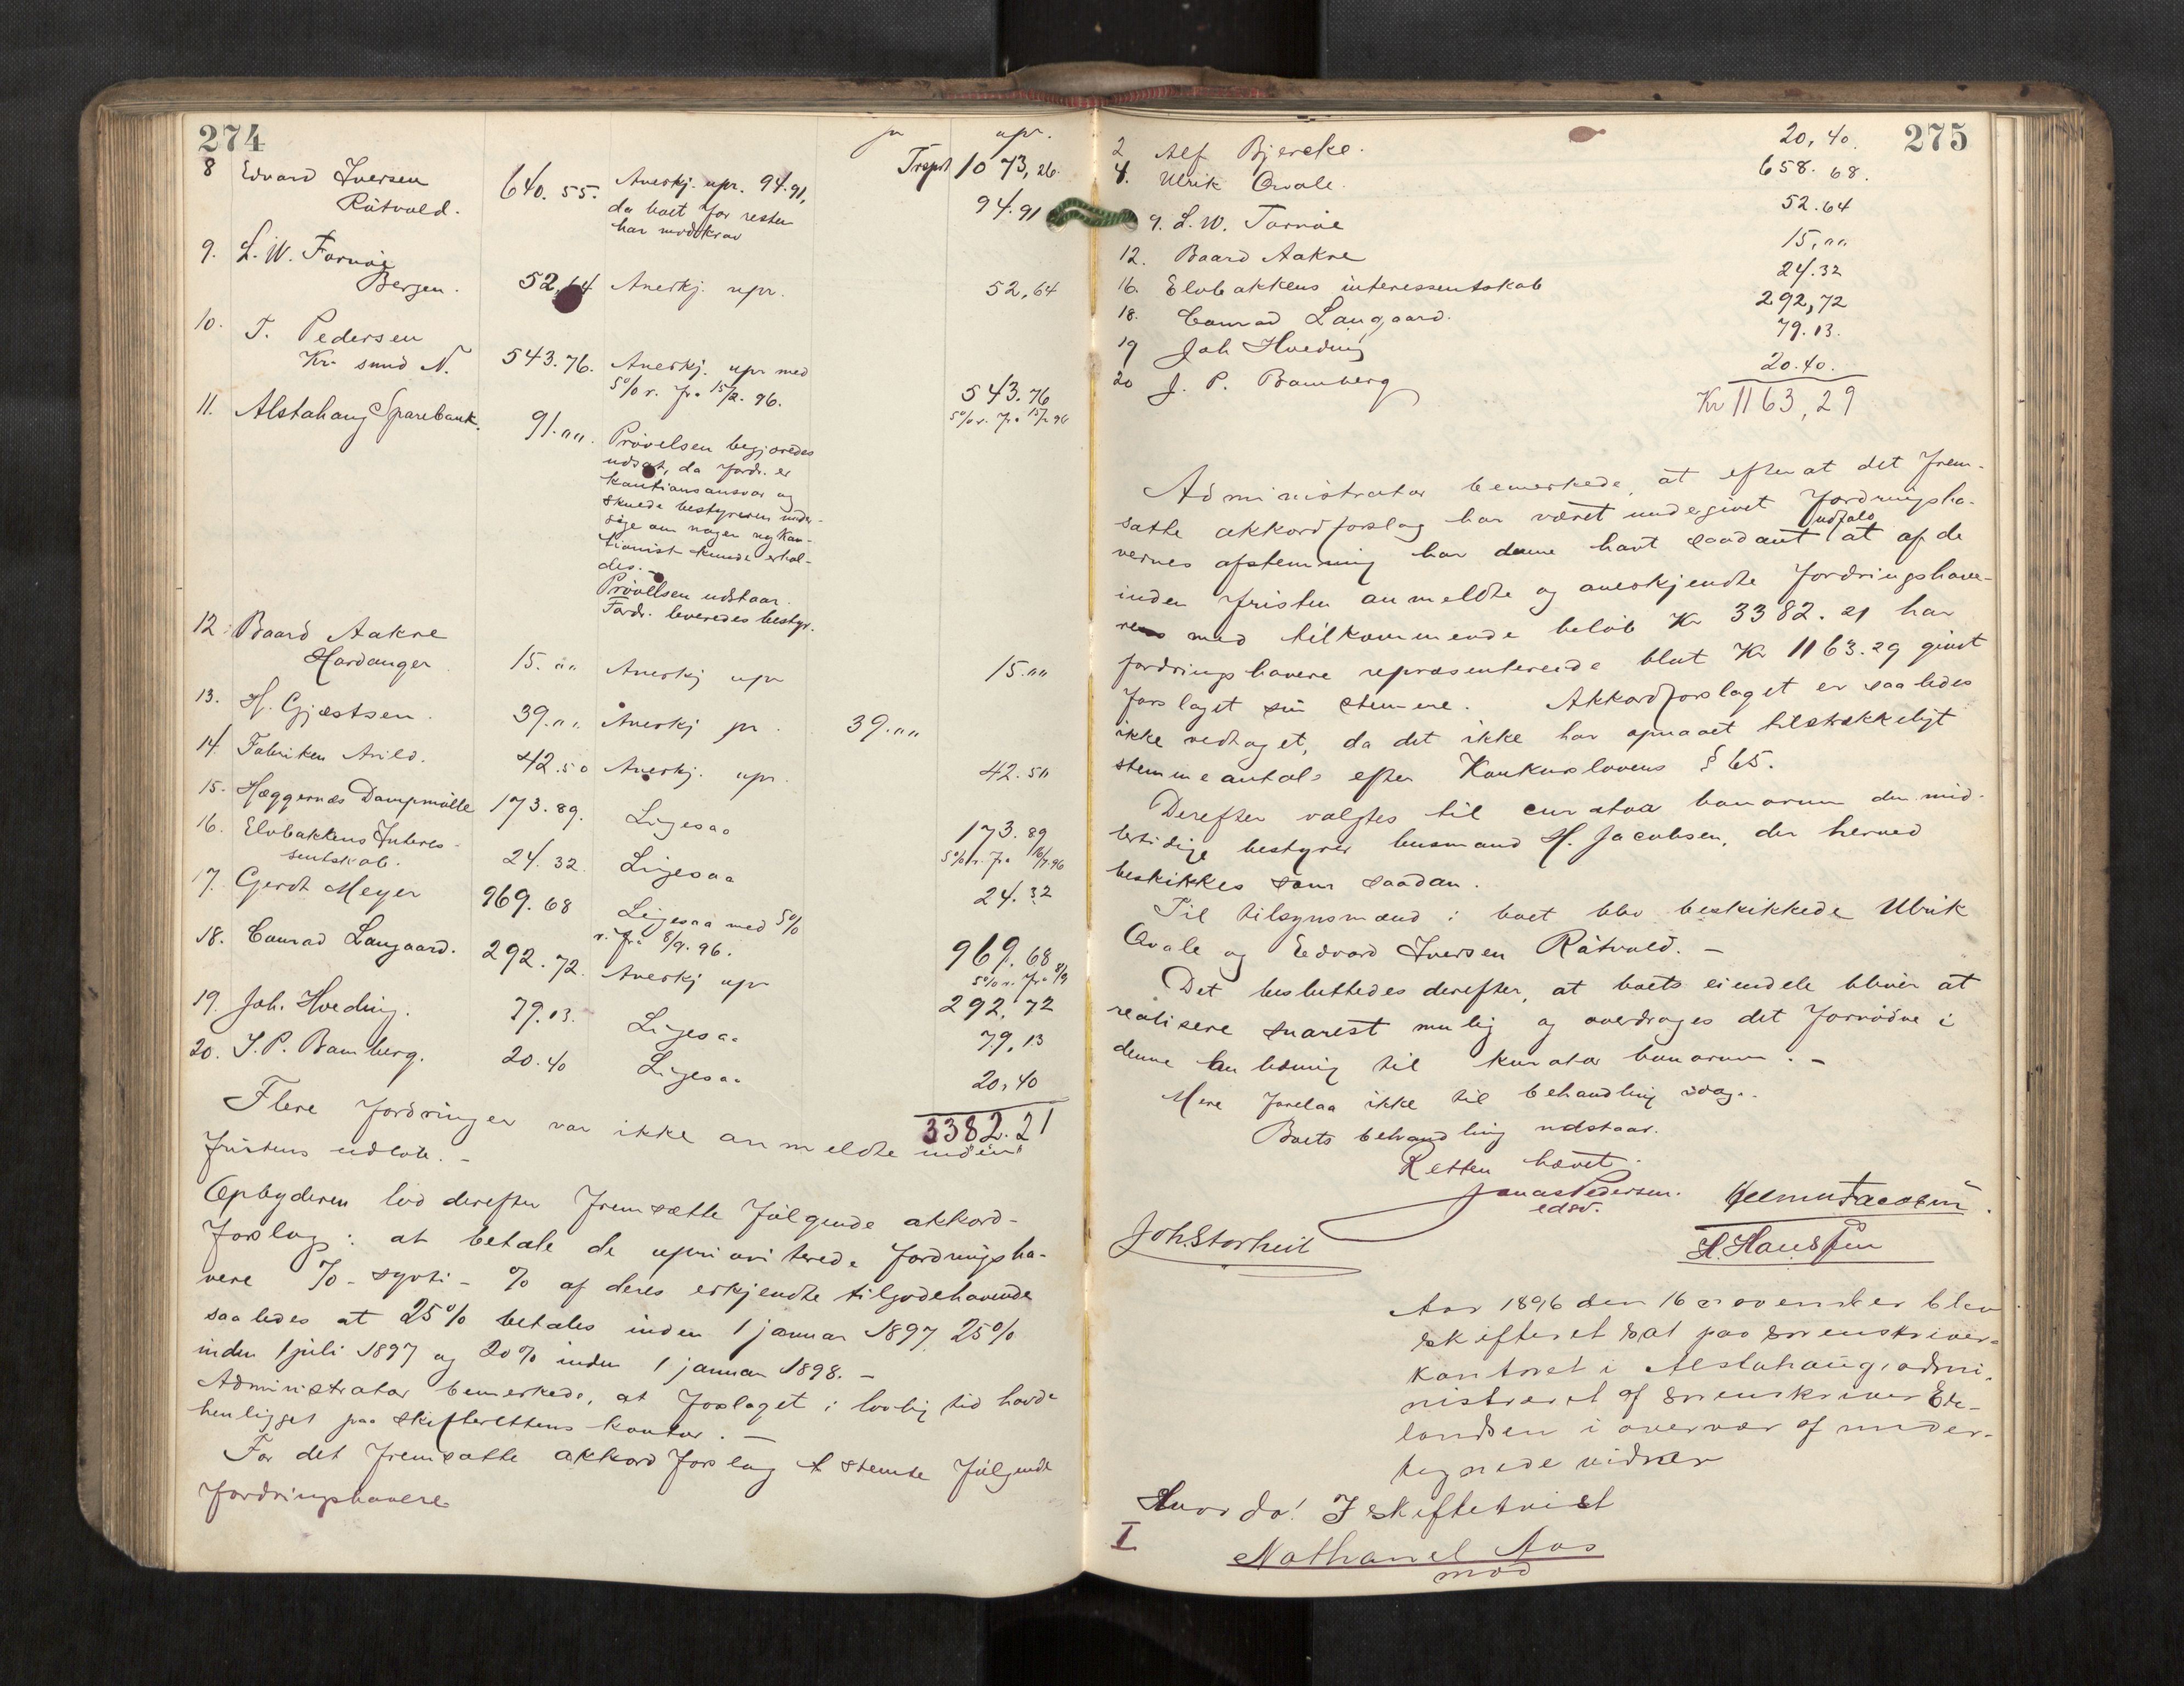 274
pr upr.
Trspt 1073,26.
8 Edvard Iversen 640.55. Anerkj. upr. 94.91, 94.91
Råtvold. da boet for resten
har modkrav
9. L. W. Fornøe
Bergen. 52,64 Anerkj. upr. 52,64
10. T. Pedersen
Kr. sund N. 543.76. Anerkj. upr med 543.76
5% r. fra 15/2. 96. 5% r. fra 15/2 96
11. Alstahaug Sparebank. 91."". Prøvelsen begjæredes
udsat, da fordr. er
kautionsansvar og
skulde bestyreren under-
søge om nogen ny Kau-
tionist kunde erhol-
des.-
Prøvelsen udstaar.
Fordr. leveredes bestyr.
12. Baard Aakre
Hardanger 15."" Anerkj upr 15.""
13. H. Gjæstsen. 39."". Anerkj pr. 39.""
14. Fabriken Arild. 42.50 Anerkj. upr. 42.50
15. Hæggernæs Dampmølle 173.89. Ligesaa 173.89
5% r. fra 16/7.96
16. Elvebakkens Interes-
sentskab. 24.32. Ligesaa 24.32
17. Gerdt Meyer 969.68 Ligesaa med 5%
r. fra 8/9. 96. 969.68
5% r. fra 8/9
18. Conrad Langaard. 292.72. Anerkj upr 292,72
19. Joh. Hveding. 79.13. Ligesaa 79,13
20. J. P. Bamberg. 20.40 Ligesaa 20,40
3382.21
Flere fordringer var ikke anmeldte inden
fristens udløb.-
Opbyderen lod derefter fremsætte følgende akkord-
forslag: at betale de uprioriterede fordringsha-
vere 70 - sytti - % af deres erkjendte tilgodehavende
saaledes at 25% betales inden 1 januar 1897 25%
inden 1 juli 1897 og 20% inden 1 januar 1898.-
Administrator bemerkede, at forslaget i lovlig tid havde
henligget paa skifterettens kontor.-
For det fremsatte akkordforslag stemte følgende
fordringshavere
275
2 Alf Bjercke. 20,40.
4. Ulrik Qvale. 658.68.
9. L. W. Fornøe 52.64
12. Baard Aakre 15,"".
16. Elvebakkens interessentskab 24.32
18. Conrad Langaard. 292,72
19 Joh Hveding 79.13.
20 J. P. Bamberg 20.40.
Kr 1163,29
Administrator bemerkede, at efterat det frem-
satte akkordforslag har været undergivet fordringsha-
vernes afstemning har denne havt saadant udfald at af de
inden fristen anmeldte og anerkjendte fordringshave-
res med tilkommende beløb Kr 3382.21 har
fordringshavere repræsenterende blot Kr 1163.29 givet
forslaget sin stemme. Akkordforslaget er saaledes
ikke vedtaget, da det ikke har opnaaet tilstrækkeligt
stemmeantal efter Konkurslovens § 65.
Derefter valgtes til curator bonorum den mid-
lertidige bestyrer husmand H. Jacobsen, der herved
beskikkes som saadan.
Til tilsynsmænd i boet blev beskikkede Ulrik
Qvale og Edvard Iversen Råtvold.-
Det besluttedes derefter, at boets eiendele bliver at
realisere snarest mulig og overdrages det fornødne i
denne anledning til kurator bonorum.-
Mere forelaa ikke til behandling idag.
Boets behandling udstaar.
Retten hævet.
Jonas Pedersen. Helmer Jacobsen.
edsv.
Joh Storheil H. Hanssen
Aar 1896 den 16 november blev
skifteret sat paa sorenskriver-
kontoret i Alstahaug, admi-
nistreret af sorenskriver Er-
landsen i overvær af under-
tegnede vidner
Hvorda! I skiftetvist
I Nathanel Aas
mod